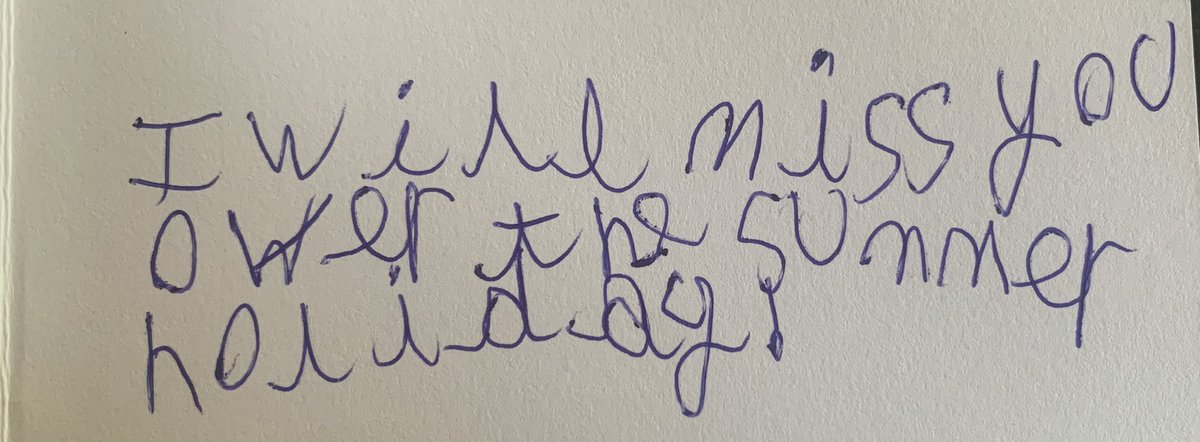 I will miss you
over the summer
holiday!